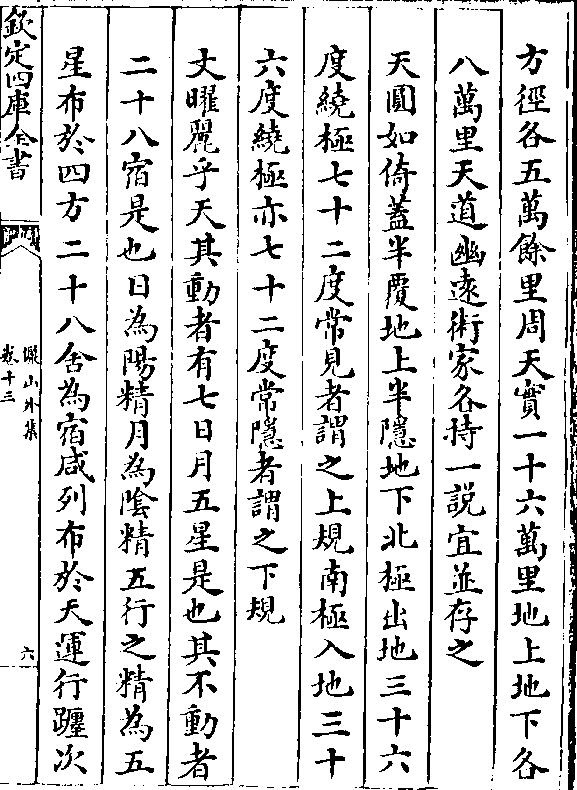 方徑各五萬餘里周天實一十六萬里地上地下各
八萬里天道幽遠術家各持一說宜並存之
天圓如倚蓋半覆地上半隱地下北極出地三十六
度繞極七十二度常見者謂之上規南極入地三十
六度繞極亦七十二度常隱者謂之下規
文曜麗乎天其動者有七日月五星是也其不動者
二十八宿是也日為陽精月為陰精五行之精為五
星布於四方二十八舍為宿咸列布於天運行躔次
欽定四庫全書
儼山外集
卷十三
六